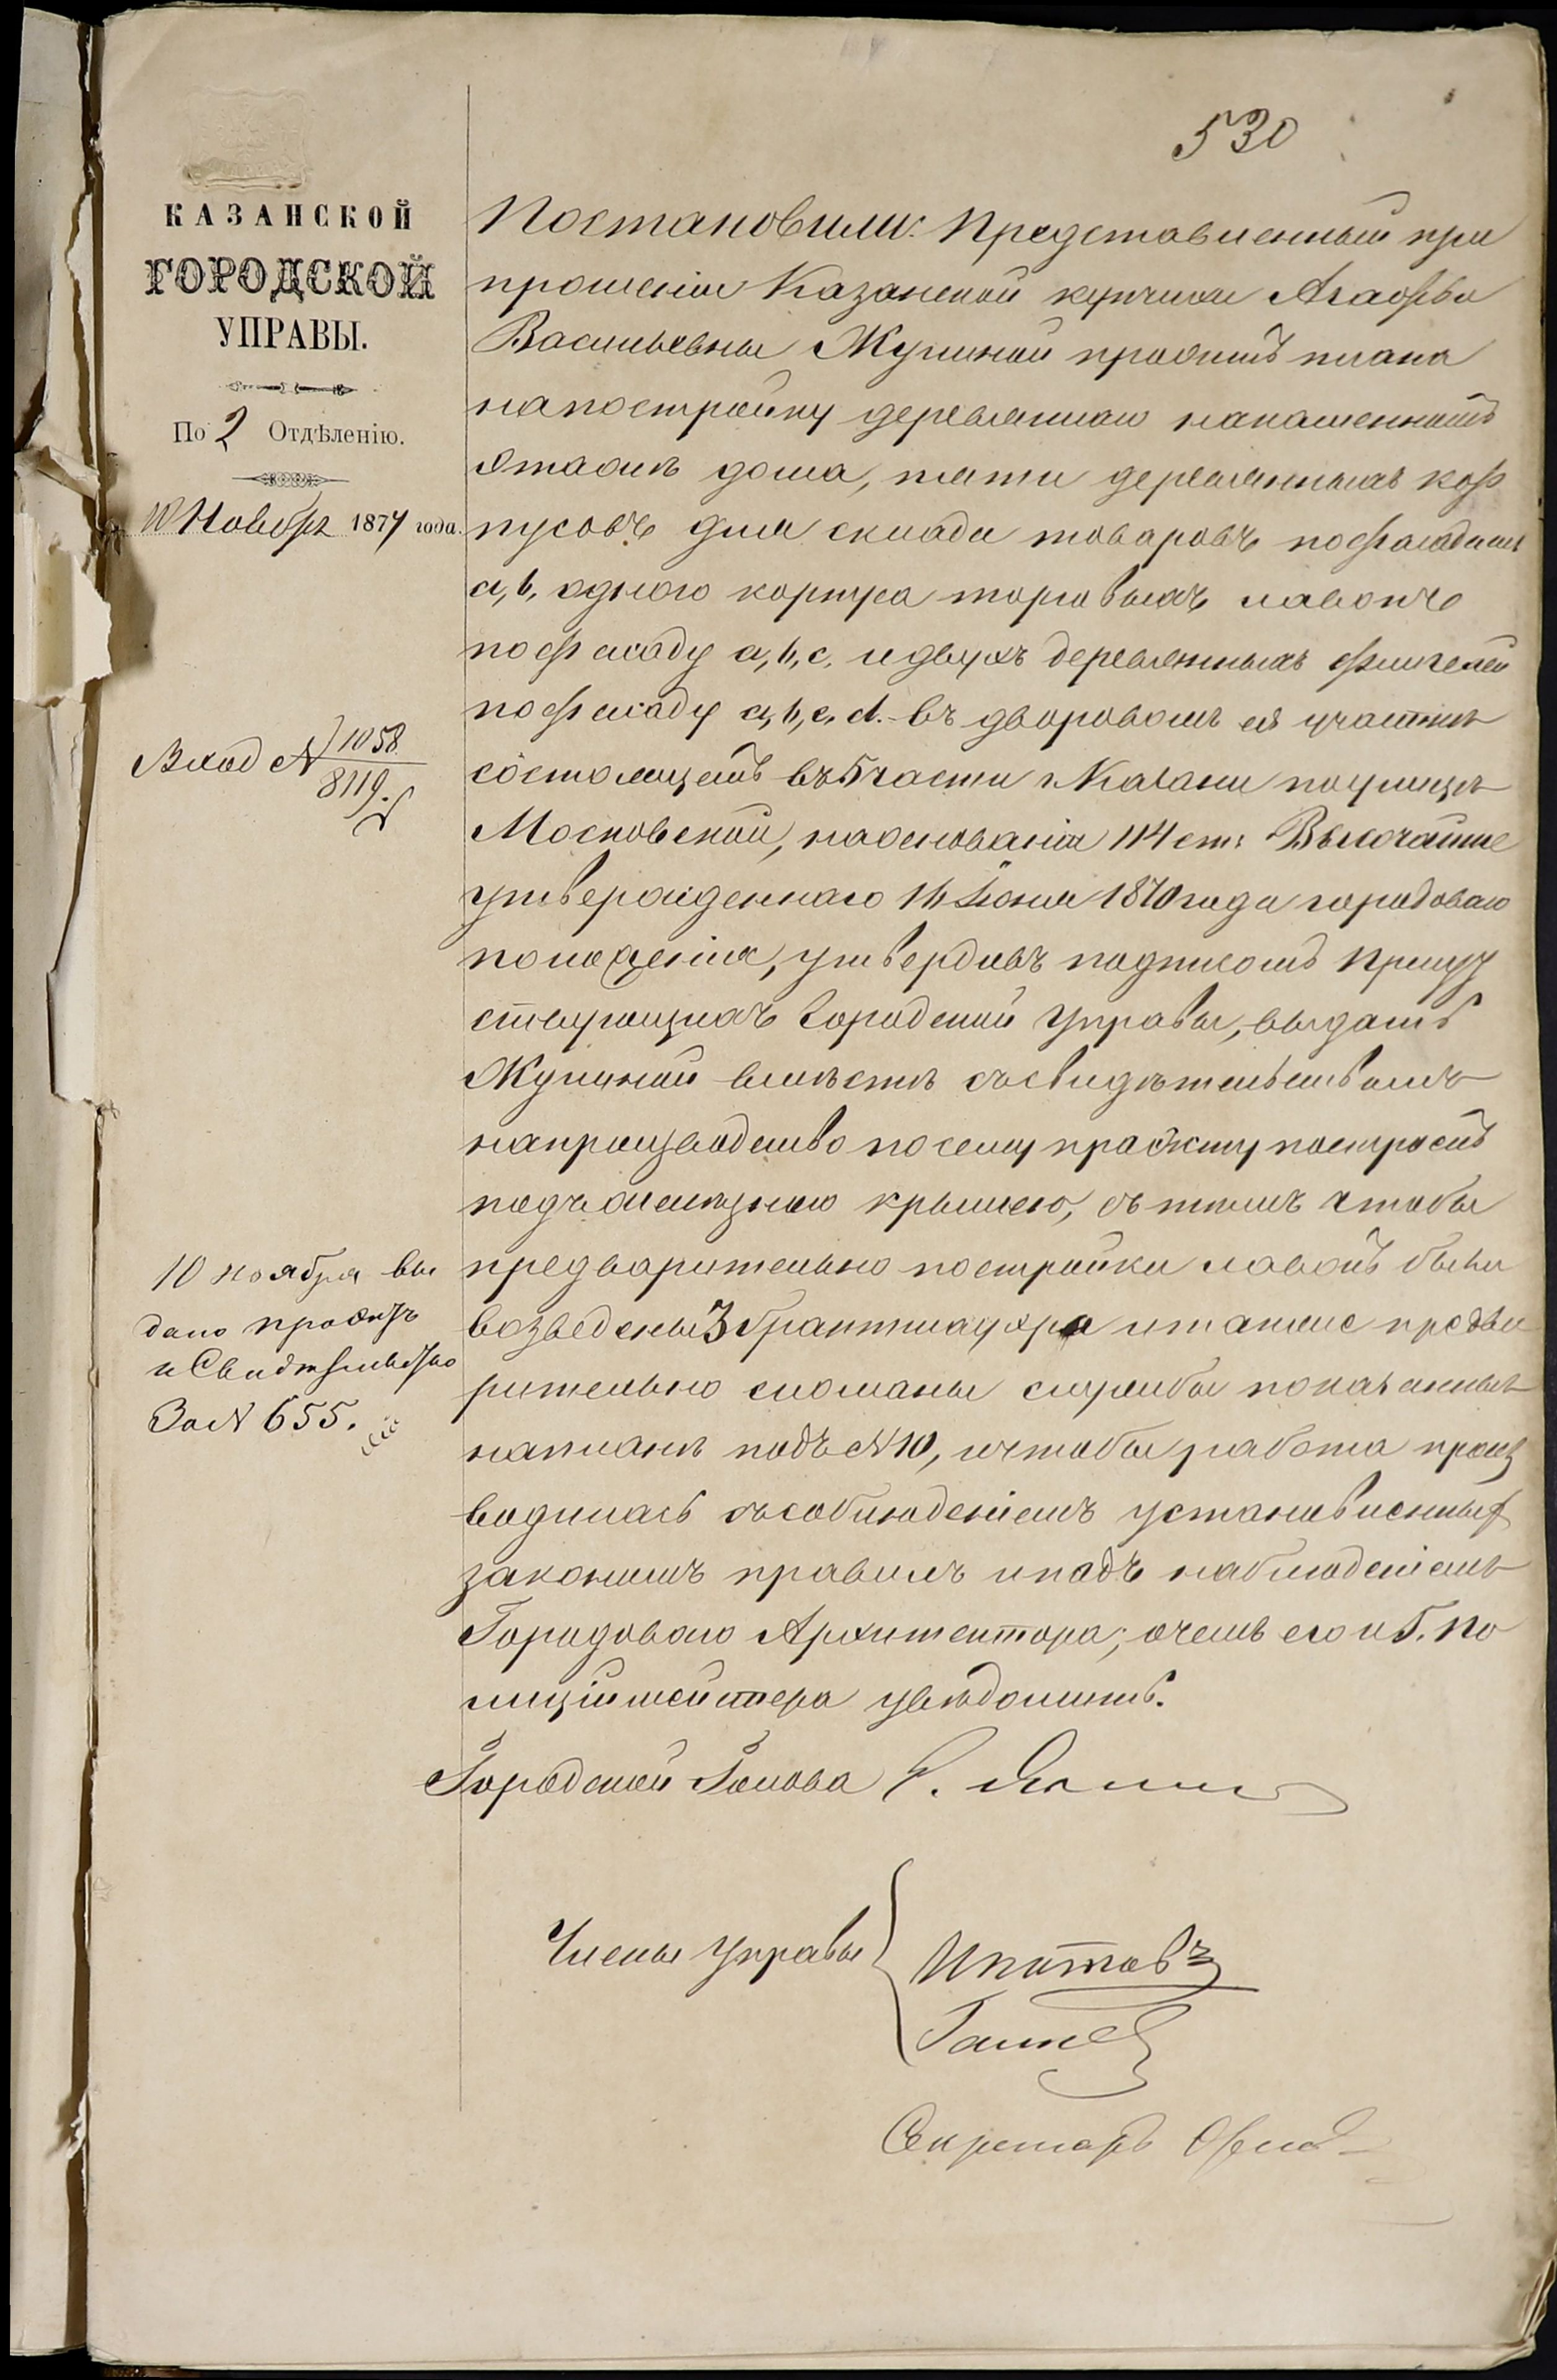 530
КАЗАНСКОЙ
ГОРОДСКОЙ
УПРАВЫ.
По 2 Отдѣленію.
10 Ноября 1874 года.
Вход № 1058
8119.
10 ноября вы
дано проэктъ
и Свидѣтельство
За № 655.
Постановили: Представленный при
прошеніи Казанской купчихи Агафьи
Васильевны Жулиной проэктъ плана
на постройку деревяннаго на каменномъ
этажѣ дома, пяти деревянныхъ кор
пусовъ для склада товаровъ по фасадамъ
a, b, одного корпуса торговыхъ лавокъ
по фасаду a, b, c, и двухъ деревянныхъ флигелей
по фасаду a, b, c, d. въ дворовомъ ея участкѣ
состоящемъ въ 5 части г. Казани по улицѣ
Московской, на основаніи 114 ст. Высочайше
утвержденнаго 16 Іюня 1870 года городоваго
положенія, утвердивъ подписомъ Присут
ствующихъ Городской Управы, выдать
Жулиной вмѣстѣ съ свидѣтельствомъ
на производство по сему проэкту построекъ
подъ желѣзною крышею, съ тѣмъ чтобы
предварительно постройки лавокъ были
возведены 3 брантмауера и также предва
рительно сломаны службы показанныя
на планѣ подъ № 10, и чтобы работа произ
водилась съ соблюденіемъ установленныхъ
закономъ правилъ и подъ наблюденіемъ
Городоваго Архитектора; о чемъ его и Г. По
лиціймейстера увѣдомить.
Городской Голова
Члены Управы
Ипатовъ
Секретарь